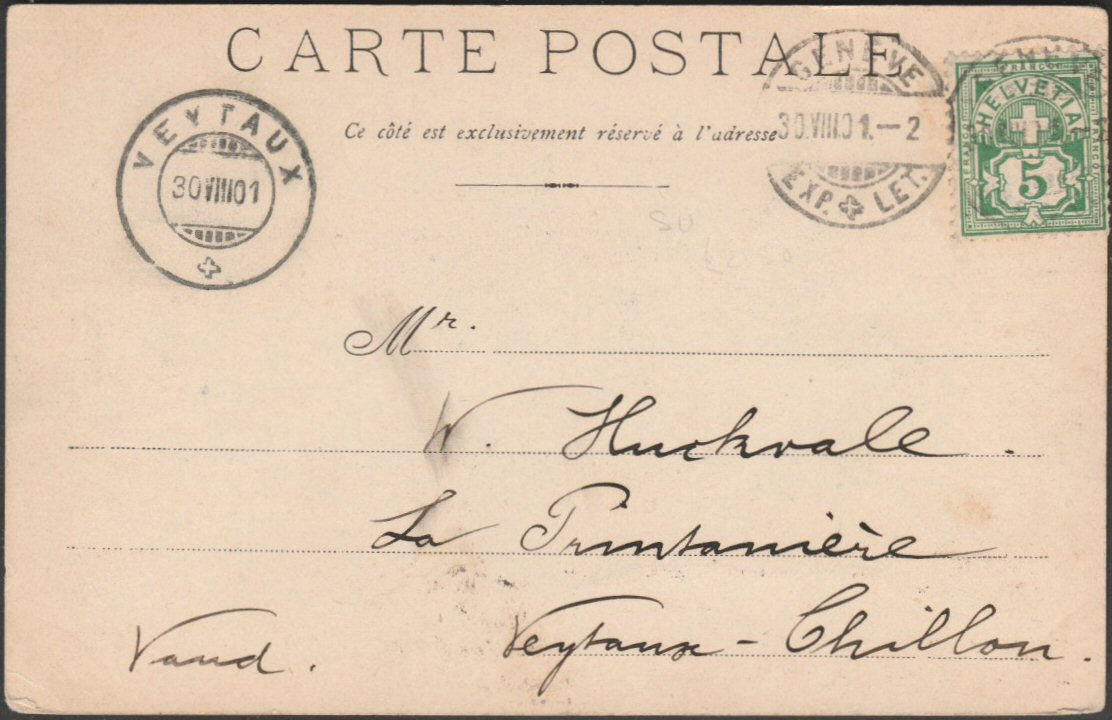 CARTE POSTALE
Ce côté est exclusivement réservé à l'adresse
VEYTAUX
30 VIII 01
GENÈVE
30.VIII.01.—2
EXP. LET.
FRANCO
HELVETIA
FRANCO
FRANCO
5
Mr.
Huckvale.
La Printanière
Veytaux - Chillon.
Vaud.